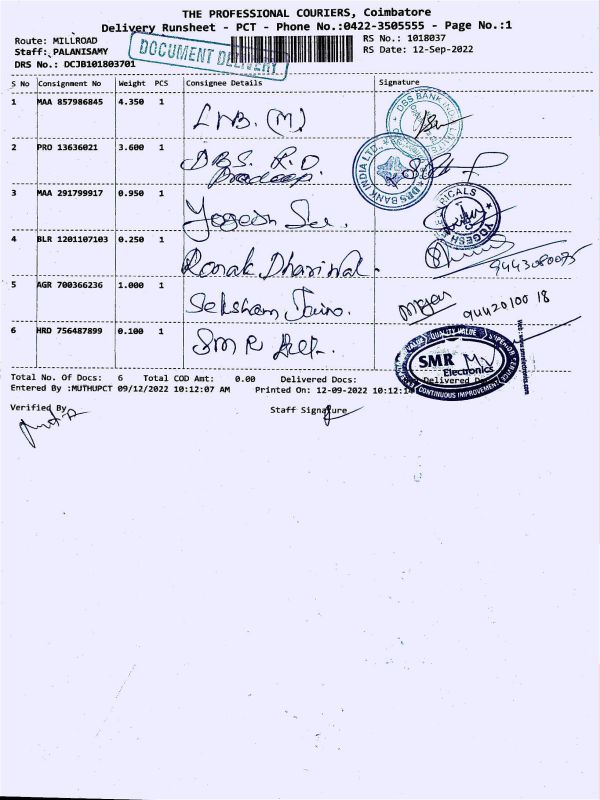 THE PROFESSIONAL COURIERS, Coimbatore
Delivery Runsheet - PCT - Phone No.:0422-3505555 - Page No.:1
Route: MILLROAD
RS No.: 1018037
Staff: PALANISAMY
DOCUMENT DELIVERY
RS Date: 12-Sep-2022
DRS No.: DCJB101803701
S No Consignment No Weight PCS Consignee Details Signature
1 MAA 857986845 4.350 1
DBS BANK INDIA LIMITED
2 PRO 13636021 3.600 1 DBS. R.D
Pradeep.
DBS BANK INDIA LTD.
3 MAA 291799917 0.950 1 Yogesh
YOGESH ELECTRICALS
4 BLR 1201107103 0.250 1 Ronak Dhariwal.
9443080075
5 AGR 700366236 1.000 1 Jain.
94420100 18
6 HRD 756487899 0.100 1 SMR
QUALITY VALUE SUPERIOR SERVICE
SMR
Electronics
CONTINUOUS IMPROVEMENT
Total No. Of Docs: 6 Total COD Amt: 0.00 Delivered Docs: Delivered
Entered By :MUTHUPCT 09/12/2022 10:12:07 AM Printed On: 12-09-2022 10:12:1
Verified By
Staff Signature